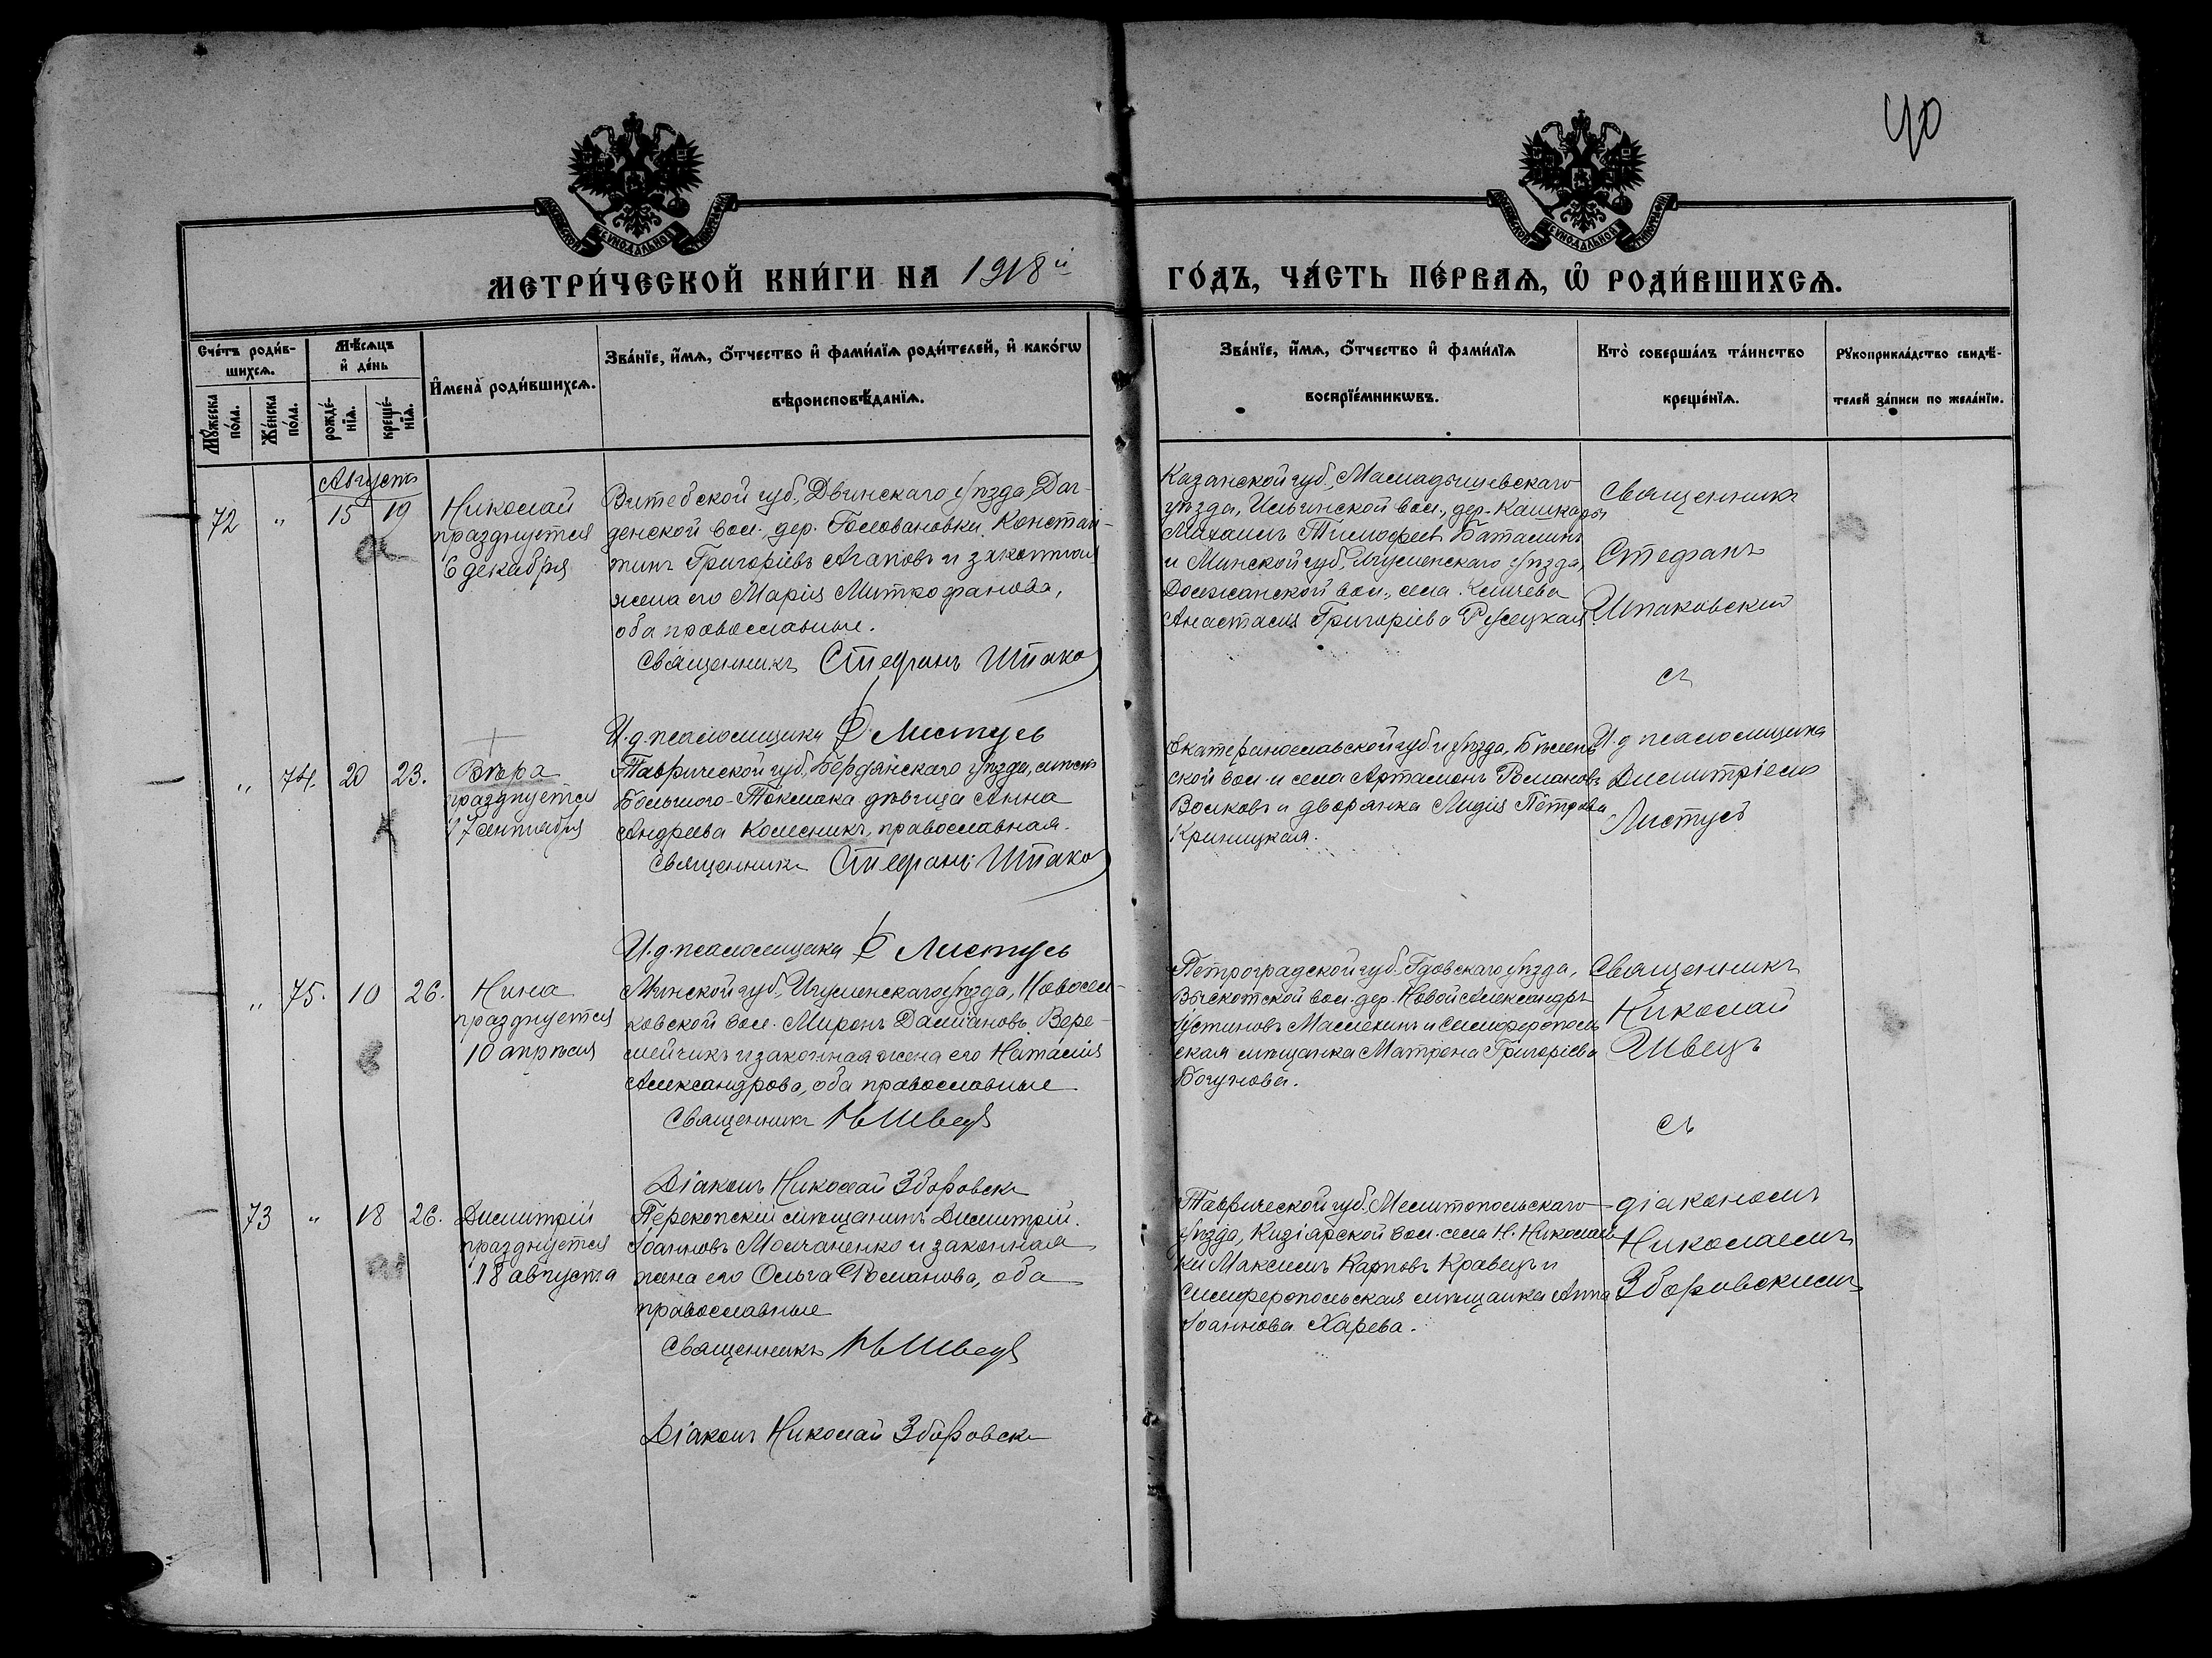 40
МЕТРИ́ЧЕСКОЙ КНИ́ГИ НА 1918й ГО́ДЪ, ЧА́СТЬ ПЕ́РВАѦ, Ѿ РОДИ́ВШИХСѦ.
Сче́тъ роди́в-
шихсѧ.
Мꙋ́жеска
по́ла.
Же́нска
по́ла.
Мѣ́сѧцъ
и҆ де́нь
рожде́-
нїѧ.
креще́-
нїѧ.
И҆мена̀ роди́вшихсѧ.
Зва́нїе, и҆́мѧ, ѻ҆́тчество и҆ фами́лїѧ роди́телей, и҆ како́гѡ
вѣроисповѣ́данїѧ.
Зва́нїе, и҆́мѧ, ѻ҆́тчество и҆ фами́лїѧ
воспрїе́мникѡвъ.
Кто̀ соверша́лъ та́инство
креще́нїѧ.
Рꙋкоприкла́дство свидѣ́-
телей за́писи по жела́нїю.
Августъ
72 " 15 19
Николай
празднуется
6 декабря
Витебской губ., Двинскаго уѣзда, Даг-
денской вол. дер. Головановки Констан-
тинъ Григоріевъ Агаповъ и законная
жена его Марія Митрофанова,
оба православные.
Священникъ Стефанъ Шпако
И.д. псаломщика Д Листусъ
Казанской губ., Мамадышевскаго
уѣзда, Ильинской вол., дер. Кашкары
Михаилъ Тимофеевъ Баталинъ
и Минской губ., Игуменскаго уѣзда,
Должанской вол., села Кличева
Анастасія Григоріева Русецкая
Священникъ
Стефанъ
Шпаковскій
съ
" 74. 20 23.
Вѣра
празднуется
17 сентября
Таврической губ., Бердянскаго уѣзда, мѣст.
Большого-Токмака дѣвица Анна
Андреева Колесникъ, православная.
Священникъ Стефанъ Шпако
И.д. псаломщика Д Листусъ
Екатеринославской губ. и уѣзда, Бѣлен-
ской вол. и села Артамонъ Романовъ
Волковъ и дворянка Лидія Петрова
Криницкая.
И.д псаломщика
Димитріемъ
Листусъ
" 75. 10 26.
Нина
празднуется
10 апрѣля
Минской губ., Игуменскаго уѣзда, Новосел-
ковской вол. Миронъ Даміановъ Вере-
мейчикъ и законная жена его Наталія
Александрова, оба православные
Священникъ Н Швецъ
Діаконъ Николай Зборовск
Петроградской губ. Гдовскаго уѣзда,
Выскотской вол. дер. Новой Александръ
Іустиновъ и Симферополь-
ская мѣщанка Матрона Григоріева
Богунова.
Священникъ
Николай
Швецъ
съ
73 " 18 26.
Димитрій
празднуется
18 августа
Перекопскій мѣщанинъ Димитрій
Іоанновъ Молчаненко и законная
жена его Ольга Романова, оба
православные
Священникъ Н Швецъ
Діаконъ Николай Зборовск
Таврической губ. Мелитопольскаго
уѣзда, Кизіарской вол. села Н. Николаев-
ки Максимъ Карповъ Кравецъ и
Симферопольская мѣщанка Анна
Іоаннова Харева.
діакономъ
Николаемъ
Зборовскимъ